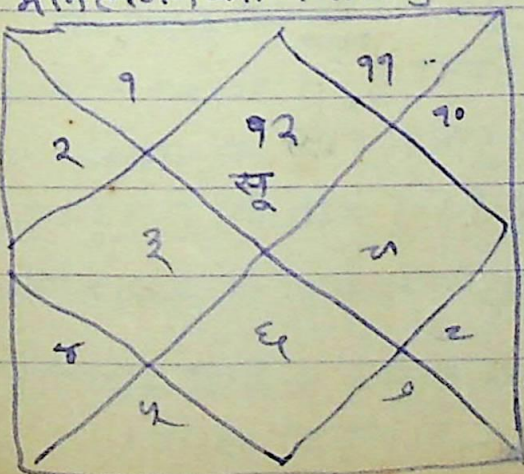 १ ११
२ १२ १०
सू
३ ९
४ ६ ८
५ ७